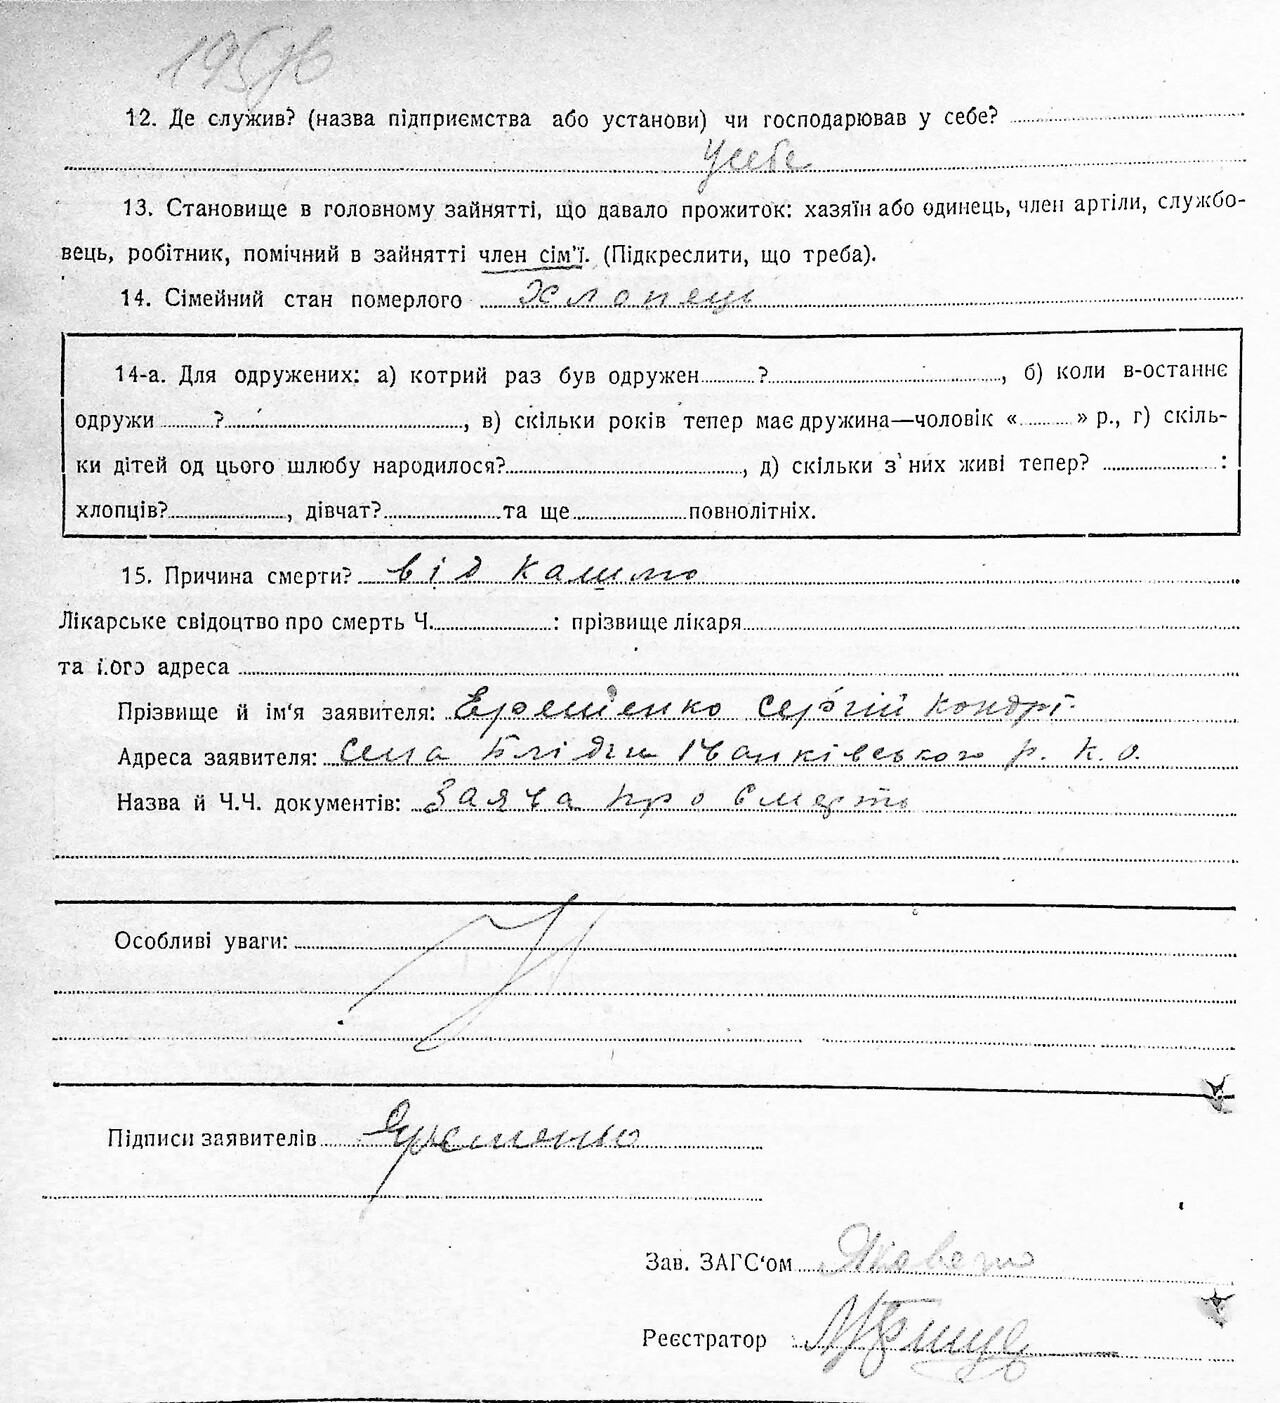 195 зв
12. Де служив? (назва підприємства або установи) чи господарював у себе?
У себе
13. Становище в головному зайнятті, що давало прожиток: хазяїн або одинець, член артіли, службо-
вець, робітник, помічний в зайнятті член сім'ї. (Підкреслити, що треба).
14. Сімейний стан померлого Хлопець
14-а. Для одружених: а) котрий раз був одружен ? , б) коли в-останнє
одружи ? , в) скільки років тепер має дружина—чоловік « » р., г) скіль-
ки дітей од цього шлюбу народилося? , д) скільки з'них живі тепер? :
хлопців? , дівчат? та ще повнолітніх.
15. Причина смерти? від кашлю
Лікарське свідоцтво про смерть Ч. : прізвище лікаря
та його адреса
Прізвище й ім'я заявителя: Еременко Сергій Кондр
Адреса заявителя: Села Блідчи Іванківського р. К.О.
Назва й Ч.Ч. документів: Заява про смерть
Особливі уваги:
Підписи заявителів Яременко
Зав. ЗАГС'ом
Реєстратор